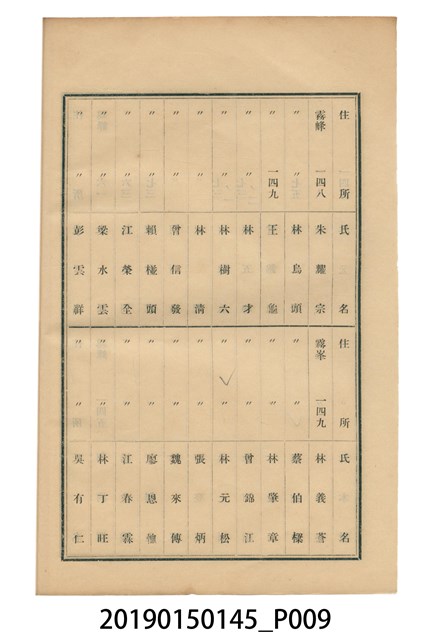 住所 氏名
霧峰 一四八 朱耀宗
〃 〃 林烏頭
〃 一四九 王
〃 〃 林才
〃 〃 林樹六
〃 〃 林清
〃 〃 曾信發
〃 〃 賴樹頭
〃 〃 江榮全
〃 〃 梁水雲
〃 〃 彭雲祥
住所 氏名
霧峯 一四九 林義
〃 〃 蔡伯樑
〃 〃 林肇章
〃 〃 曾錦江
〃 〃 林元松
〃 〃 張炳
〃 〃 魏來傳
〃 〃 廖恩
〃 〃 江春霖
〃 〃 林丁旺
〃 〃 吳有仁
20190150145_P009